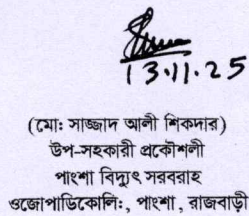 13.11.25
(মোঃ সাজ্জাদ আলী শিকদার)
উপ-সহকারী প্রকৌশলী
পাংশা বিদ্যুৎ সরবরাহ
ওজোপাডিকোলিঃ, পাংশা, রাজবাড়ী